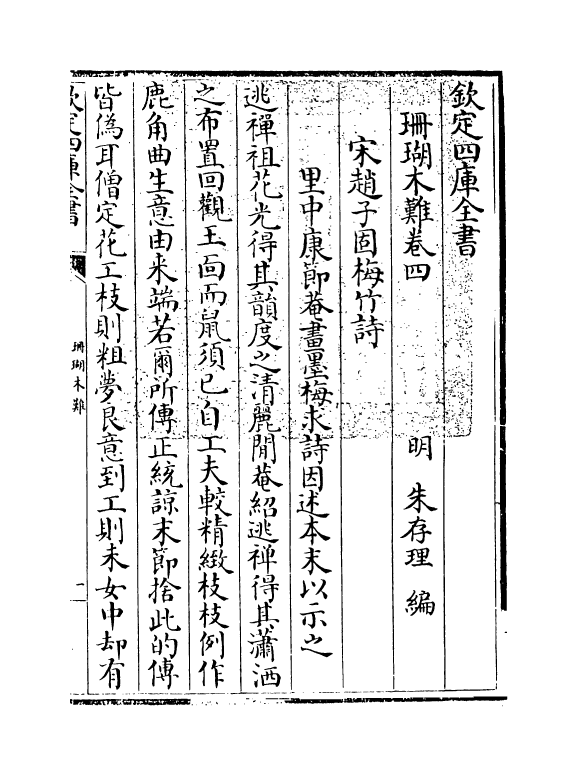 欽定四庫全書
珊瑚木難卷四
明 朱存理 編
宋趙子固梅竹詩
里中康節菴畫墨梅求詩因述本末以示之
逃禪祖花光得其韻度之清麗閒菴紹逃禪得其瀟洒
之布置回觀玉面而鼠須已自工夫較精緻枝枝例作
鹿角曲生意由来端若爾所傳正統諒末節捨此的傳
皆偽耳僧定花工枝則粗夢良意到工則未女中却有
欽定四庫全書
珊瑚木難
一